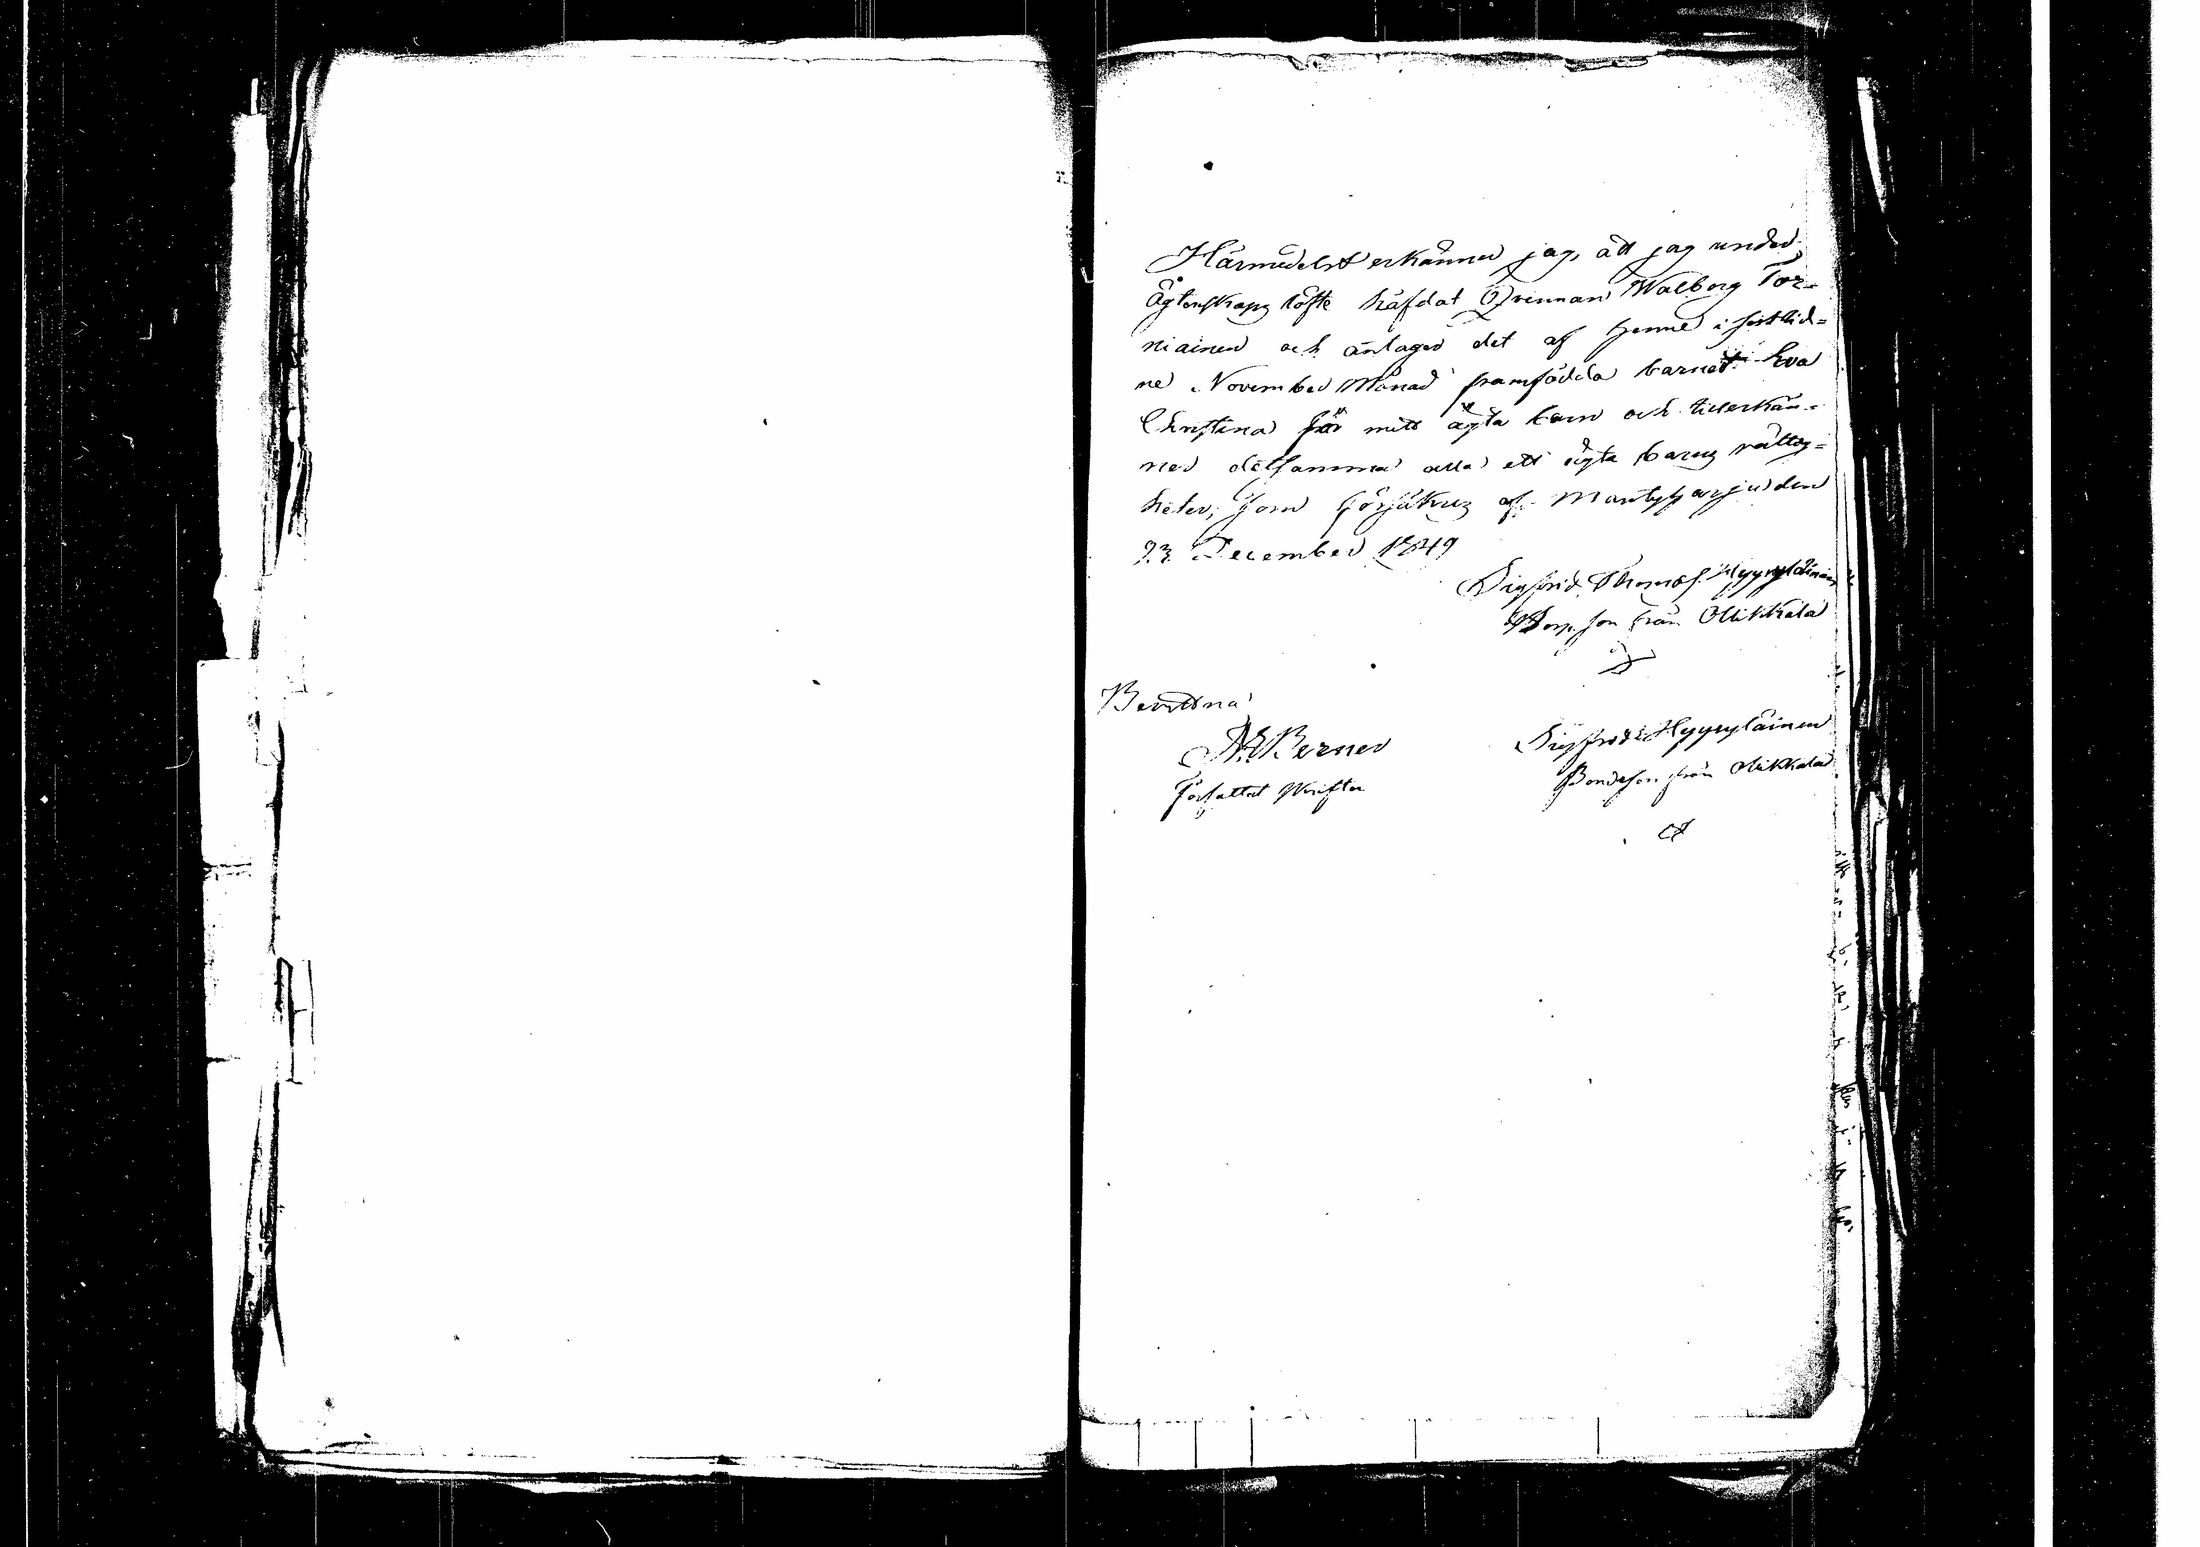 Härmedelst erkänner jag, att jag under
Ägtenskaps löfte häfdat Qvinnan Walborg Tor-
niainen och antager det af henne i sistlid-
ne November Månad framfödda barnet Eva
Christina för mitt ägta barn och tillerkän-
ner detsamma alla ett ägta barns rättig-
heter, som försäkras af Mäntyharju den
23 December 1849
Sigfrid Thomas Hyyryläinen
Torp. son från Ollikkala
Bevittna
Berner
författat Skriften
Sigfrid Hyyryläinen
Bondeson från Olikkala